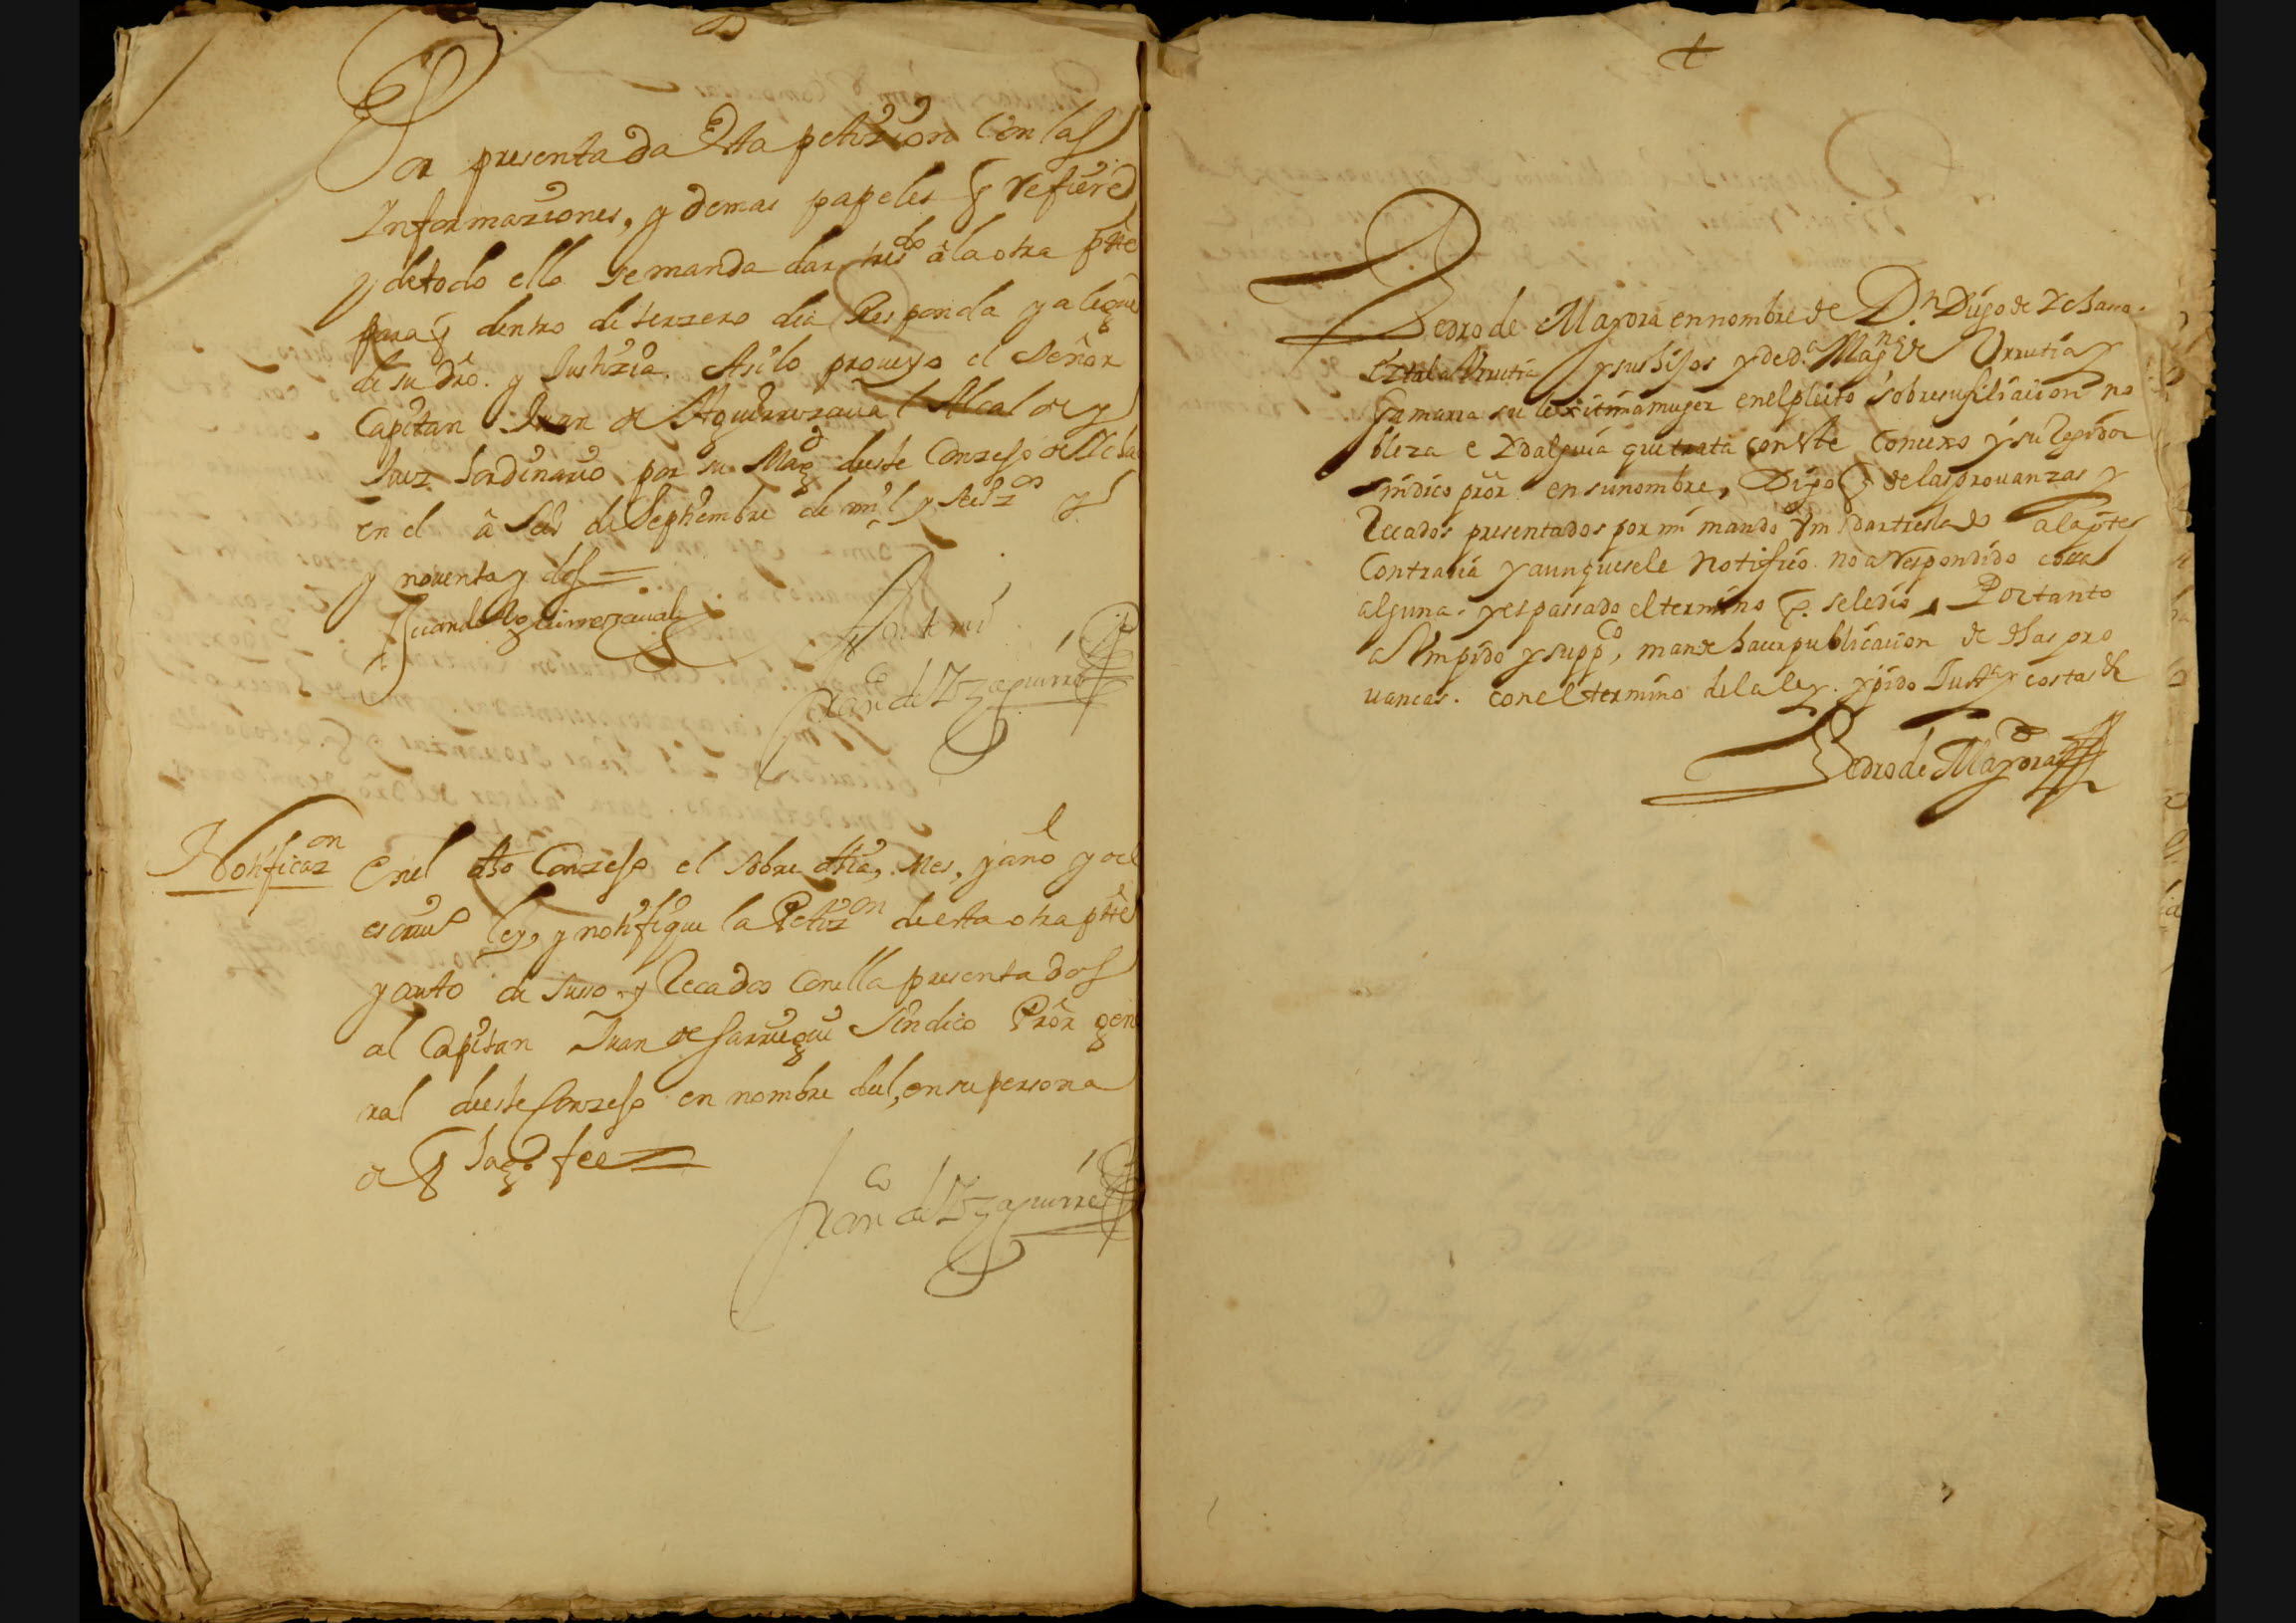 Por presentada esta petizion con las
Informaziones, y demas papeles q̃ refiere
y de todo ello se manda dar tresdo a la otra pte
para q̃ dentro de terzero dia Responda y alegue
de su dro. y Justizia. Asi lo proueyo el Señor
Capitan Juan de Aguirrezaual Alcalde y
Juez hordinario por su Magd deste Conzejo de
en el a seis de Septiembre de mil y seiszos
y nouenta y dos
Juan de Aguirrezauala
Ante mi
Franco de Yzaguirre
Notificazon En el dho Conzejo el sobre dho dia, mes, y año yo el
escriuo ley, y notifique la Petizon de esta otra pte
y auto de suso. y Recados con ella presentados
al Capitan Juan de Jarruegui Sindico Pror gene
ral deste Conzejo en nombre del, en su persona
de q̃ doy fee
Franco de Yzaguirre
Pedro de Mayora en nombre de Dn Diego de Echaua.
Urrutia y sus hijos y de Da Magna de Urrutia y
Gamarra su lexitima muger en el pleito sobre su filiacion no
bleza e Ydalguia que trata con este Concexo y su Regidor
sindico pror en su nombre, Digo q̃ de las prouanzas y
Recados presentados por mi mando Vm dar treslado a la pte
Contraria y aunque se le Notifico no a respondido cossa
alguna. y es passado el termino q̃. se le dio, Por tanto
a Vm pido y suppco, mande hacer publicacion de dhas pro
uancas. con el termino de la ley. y pido Justa y costas
Pedro de Mayora